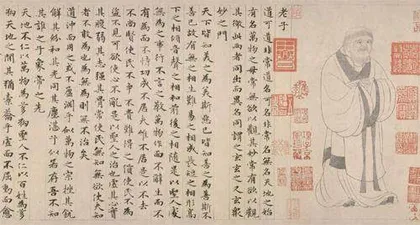 老子
道可道非常道名可名非常名無名天地之始
有名萬物之母常無欲以觀其妙常有欲以觀
其徼此兩者同出而異名同謂之玄玄之又玄衆
妙之門
天下皆知美之為美斯惡已皆知善之為善斯不
善已故有無之相生難易之相成長短之相形高
下之相傾音聲之相和前後之相隨是以聖人處
無為之事行不言之教萬物作而不辭生而不
有為而不恃功成不居夫惟不居是以不去
不尚賢使民不爭不貴難得之貨使民不為
盗不見可欲使心不亂是以聖人之治也虛其心實
其腹弱其志强其骨常使民無知無欲使夫知
者不敢為也為無為則無不治矣
道冲而用之或不盈淵乎似萬物之宗挫其銳
解其紛和其光同其塵湛兮似若存吾不知
其誰之子象帝之先
天地不仁以萬物為芻狗聖人不仁以百姓為芻
狗天地之間其猶橐籥乎虛而不屈動而愈